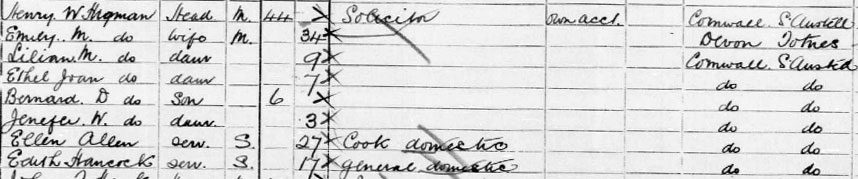 Henry W Higman Head M. 44 Solicitor own acct. Cornwall S. Austell
Emily. M. do wife M. 34 Devon Totnes
Lilian. M. do daur 9 Cornwall S Austell
Ethel Joan do daur 7 do do
Bernard. D do Son 6 do do
Jenefer. W. do daur. 3 do do
Ellen Allen serv. S. 27 Cook domestic do do
Edith Hancock serv. S. 17 general domestic do do